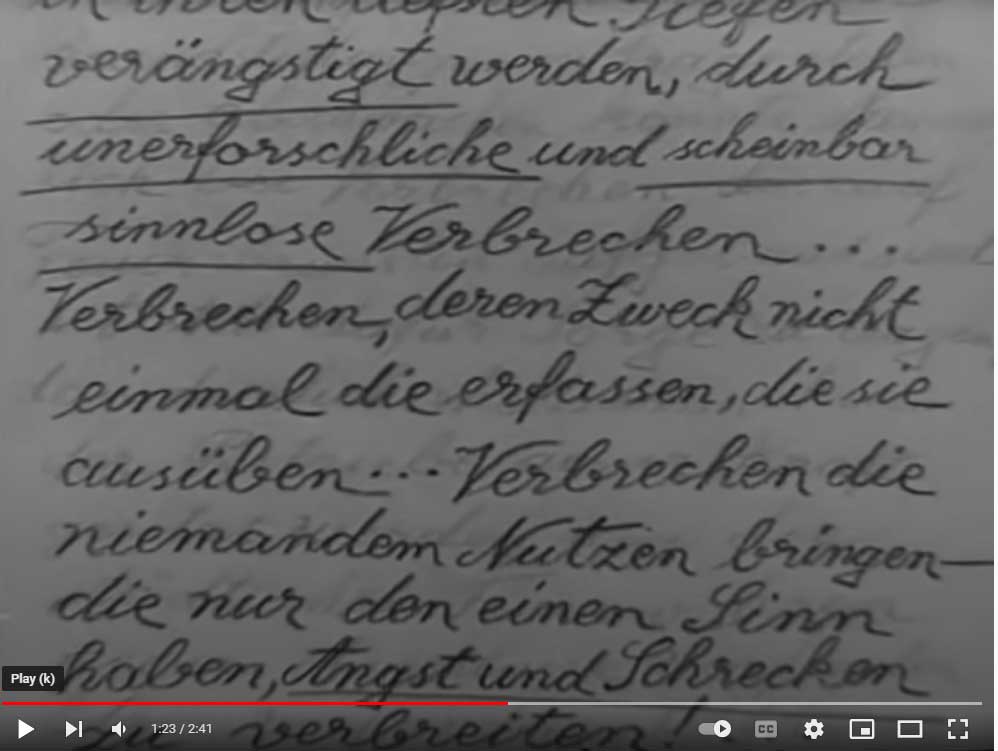 in ihren tiefsten Tiefen
verängstigt werden, durch
unerforschliche und scheinbar
sinnlose Verbrechen...
Verbrechen, deren Zweck nicht
einmal die erfassen, die sie
ausüben... Verbrechen die
niemandem Nutzen bringen—
die nur den einen Sinn
haben, Angst und Schrecken
Play (k)
zu verbreiten!
1:23 / 2:41
CC